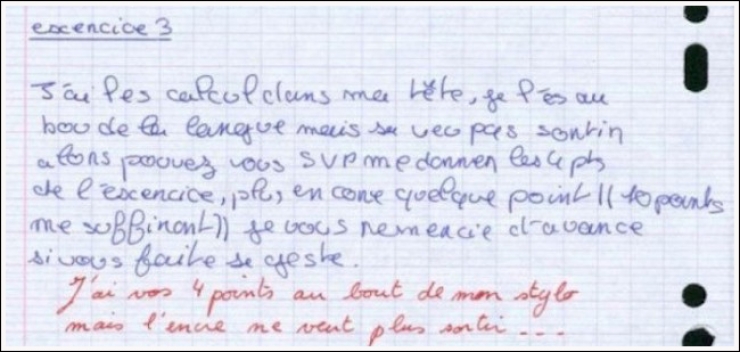 exercice 3
J'ai les calcul dans ma tête, je l'es au
bou de la langue mais sa veu pas sortir
alons pouvez vous SVP me donner les 4 pts
de l'exercice, plus encore quelque point ((10 points
me suffiront)) je vous remercie d'avance
si vous faite se geste.
J'ai vos 4 points au bout de mon stylo
mais l'encre ne veut plus sortir ...